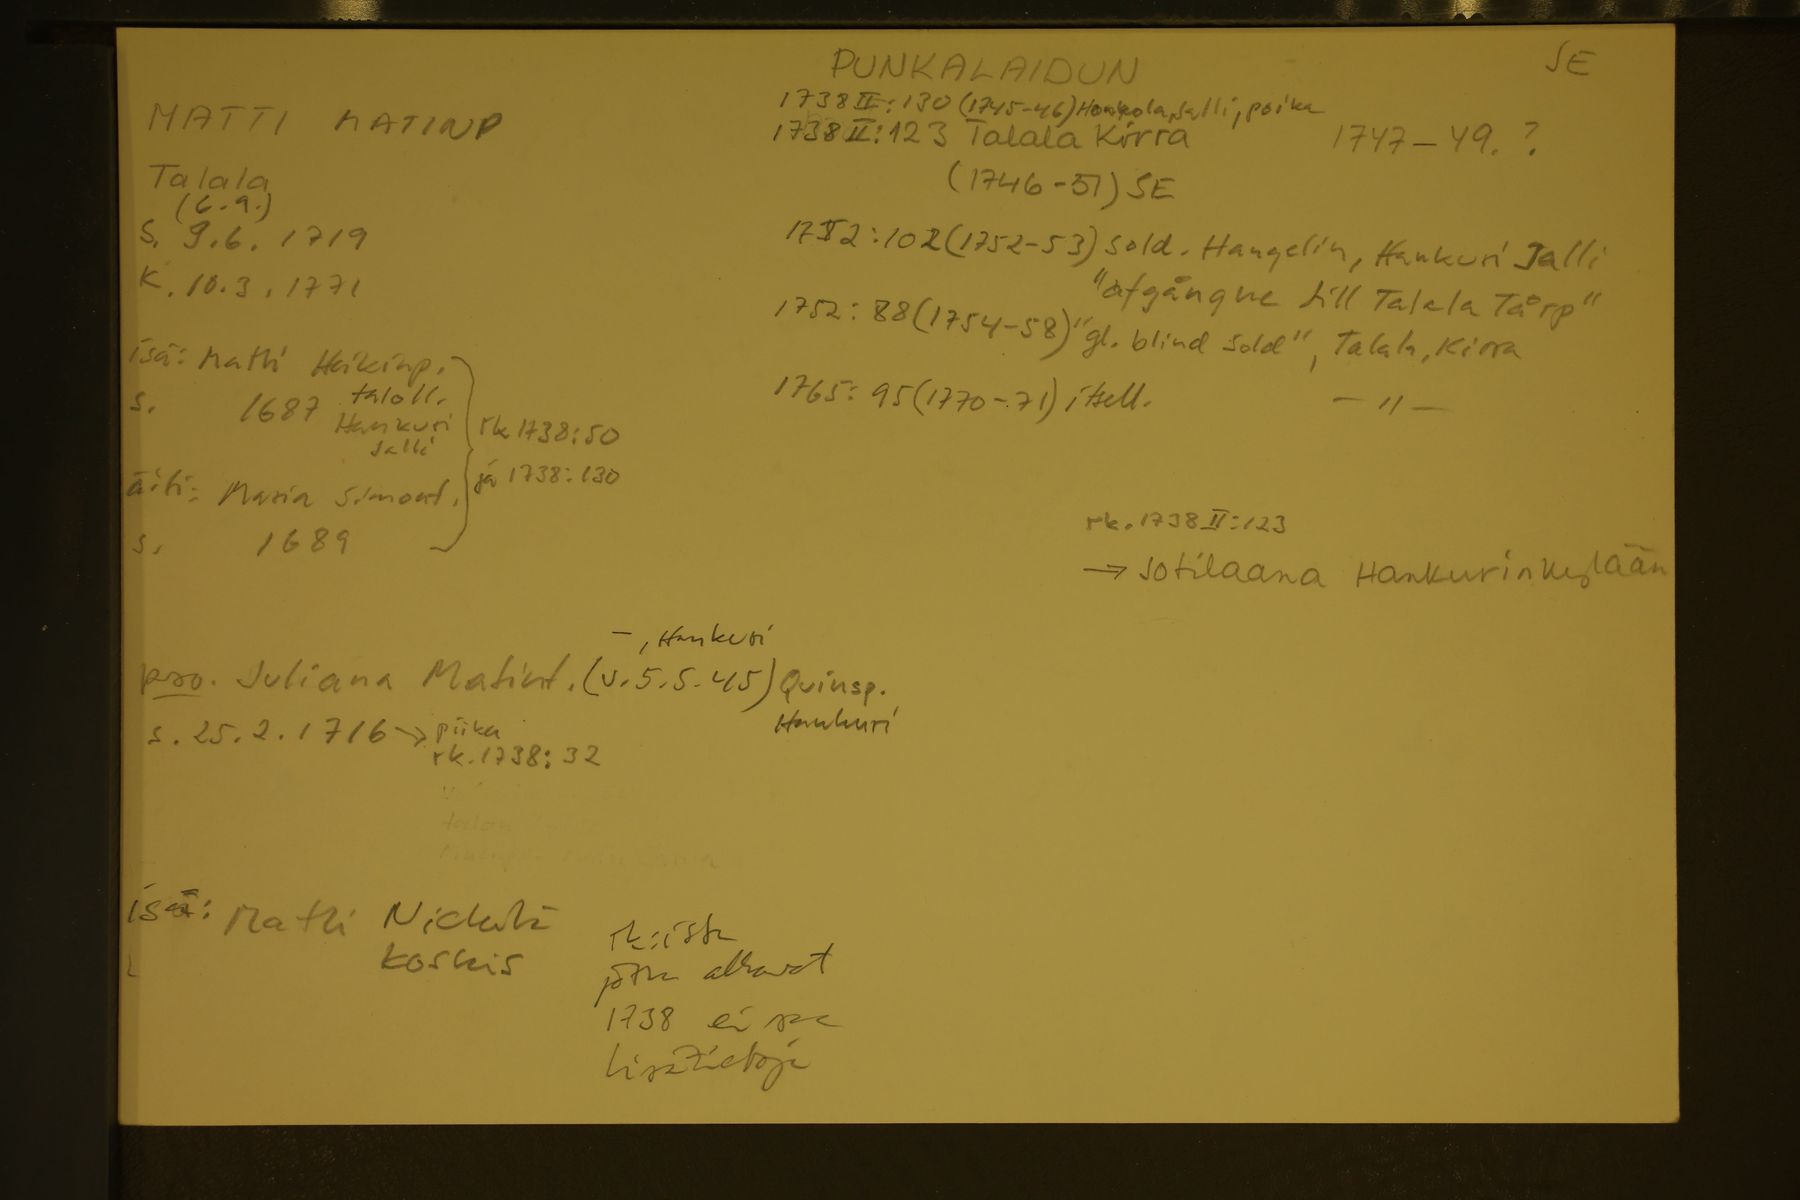 PUNKALAIDUN
SE
MATTI MATINP
Talala
(6.9.)
s. 9.6. 1719
k. 10.3. 1771
isä: Matti Heikinp.
s. 1687 taloll.
Hankuri
Jalli
äiti: Maria Simont.
s. 1689
rk 1738:50
ja 1738:130
1738 II:130 (1745-46) Honkola, Jalli, poika
1738 II:123 Talala Kirra 1747-49.?
(1746-51) SE
1752:102 (1752-53) sold. Hangelin, Hankuri Jalli
"afgångne till Talala Tårp"
1752:88 (1754-58) "gl. blind sold", Talala, Kirra
1765: 95 (1770-71) itsell. -"-
rk. 1738 II:123
→ sotilaana Hankurinkylään
-, Hankuri
pso. Juliana Matint. (v. 5.5.45) Quinsp.
Hankuri
s. 25.2. 1716 → piika
rk. 1738:32
talon
isä: Matti Nickilä
Koskis
rk:ista
jotka alkavat
1738 ei saa
lisätietoja